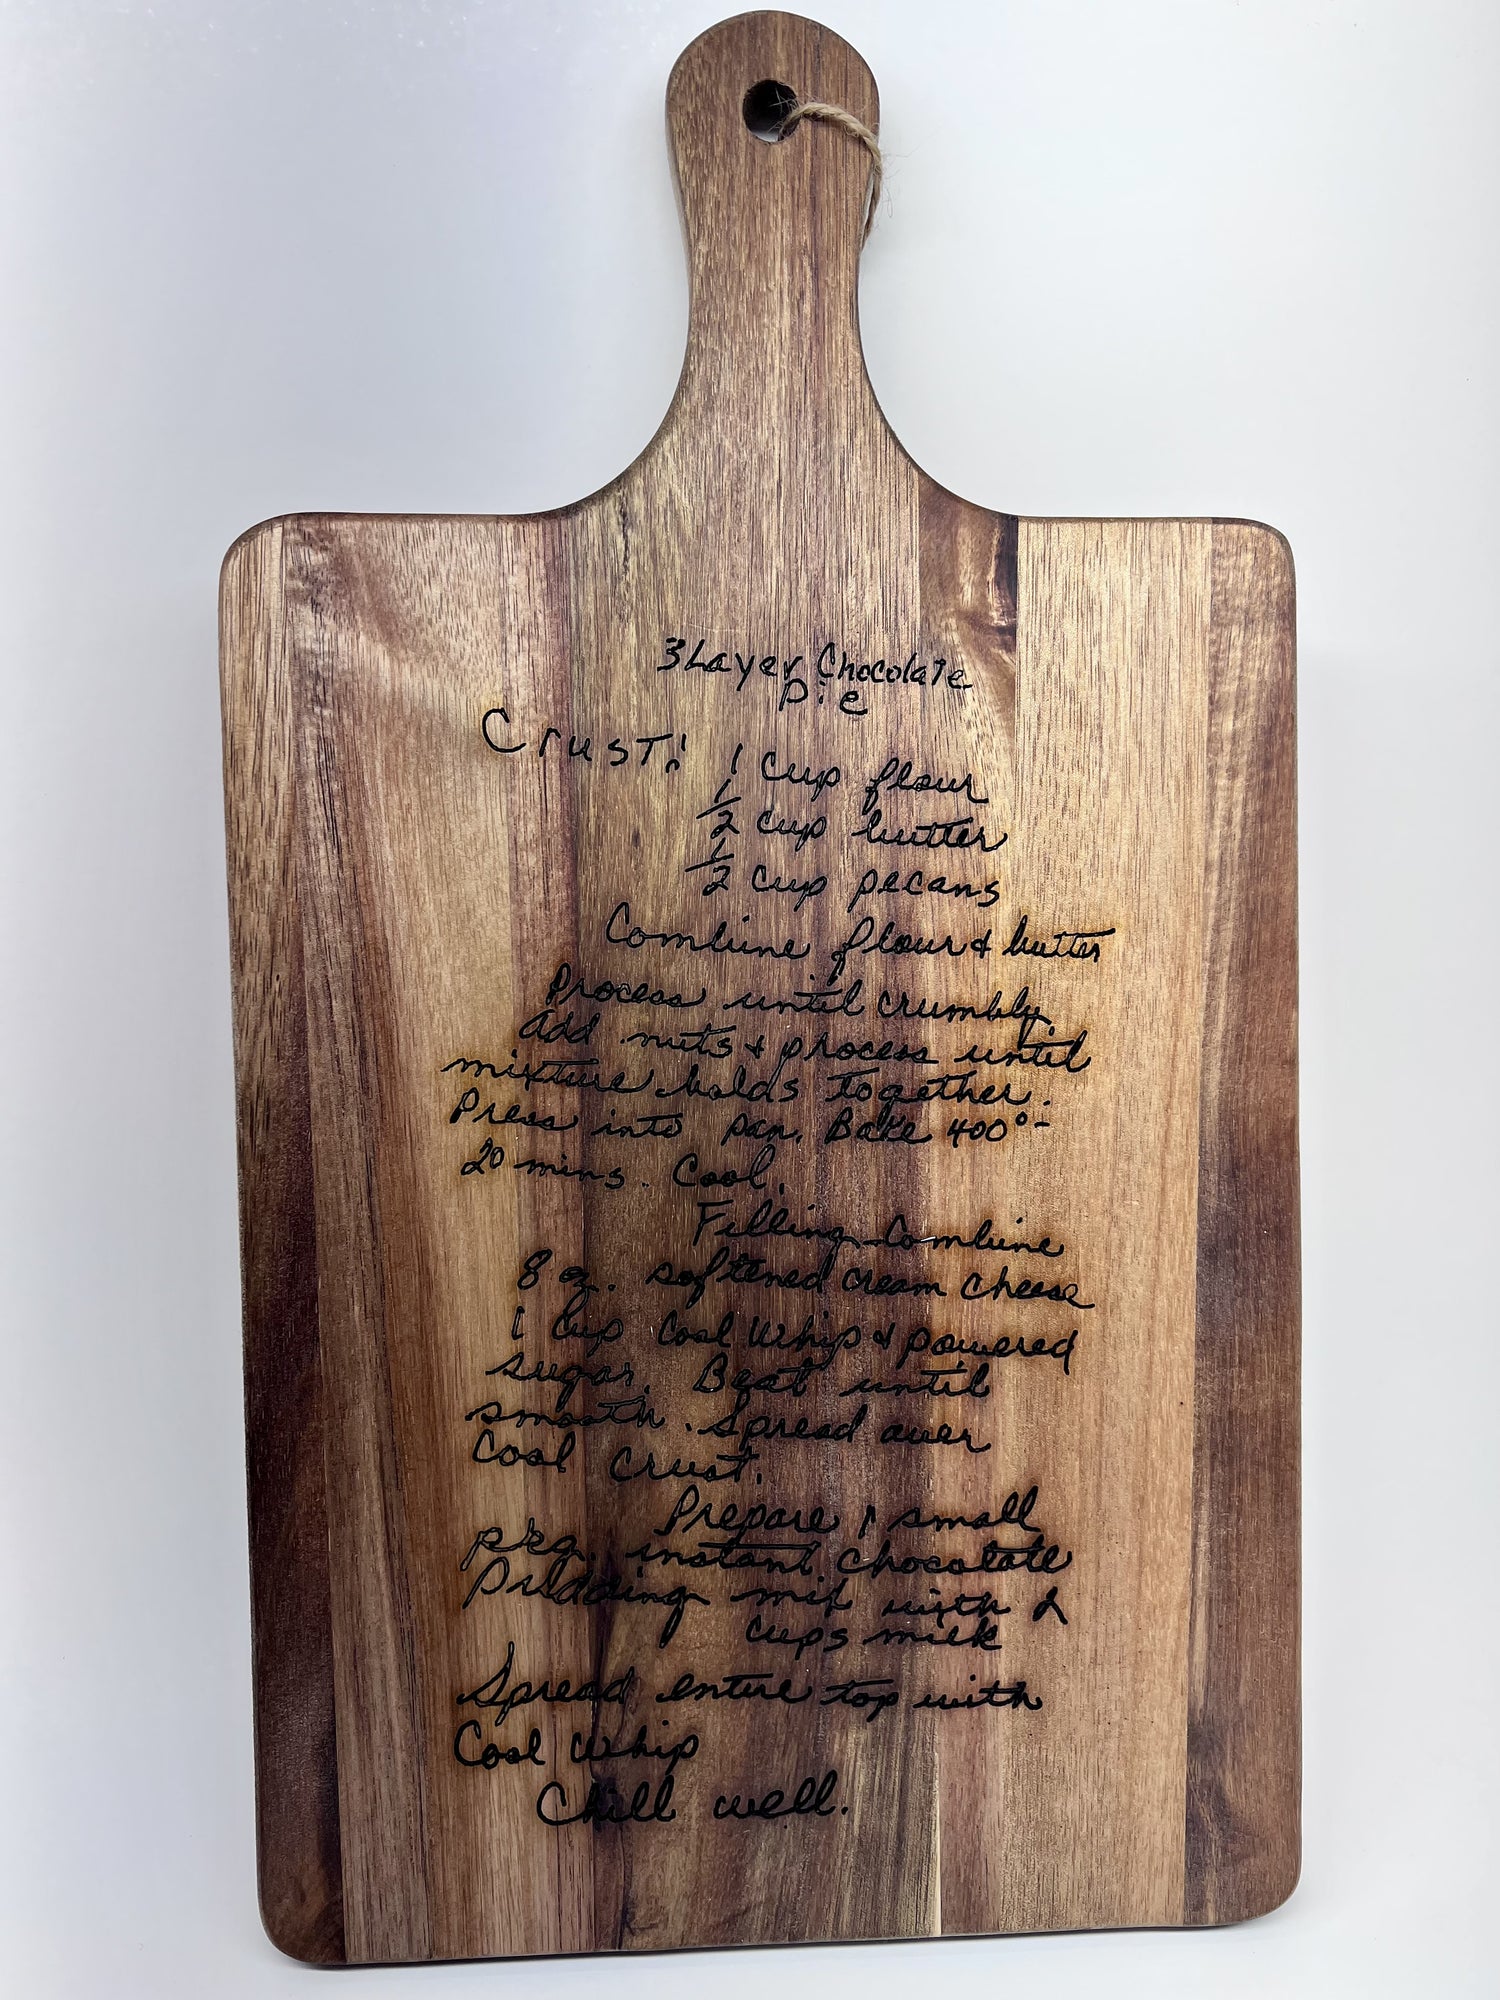 3 Layer Chocolate
Pie
Crust: 1 cup flour
1/2 cup butter
1/2 cup pecans
Combine flour & butter
Process until crumbly
add nuts & process until
mixture holds together.
Press into pan. Bake 400°-
20 mins. Cool.
Filling-Combine
8 oz. softened cream cheese
1 cup Cool Whip & powered
sugar. Beat until
smooth. Spread over
cool crust.
Prepare 1 small
pkg. instant chocolate
Pudding mix with 2
cups milk
Spread entire top with
Cool Whip
Chill well.